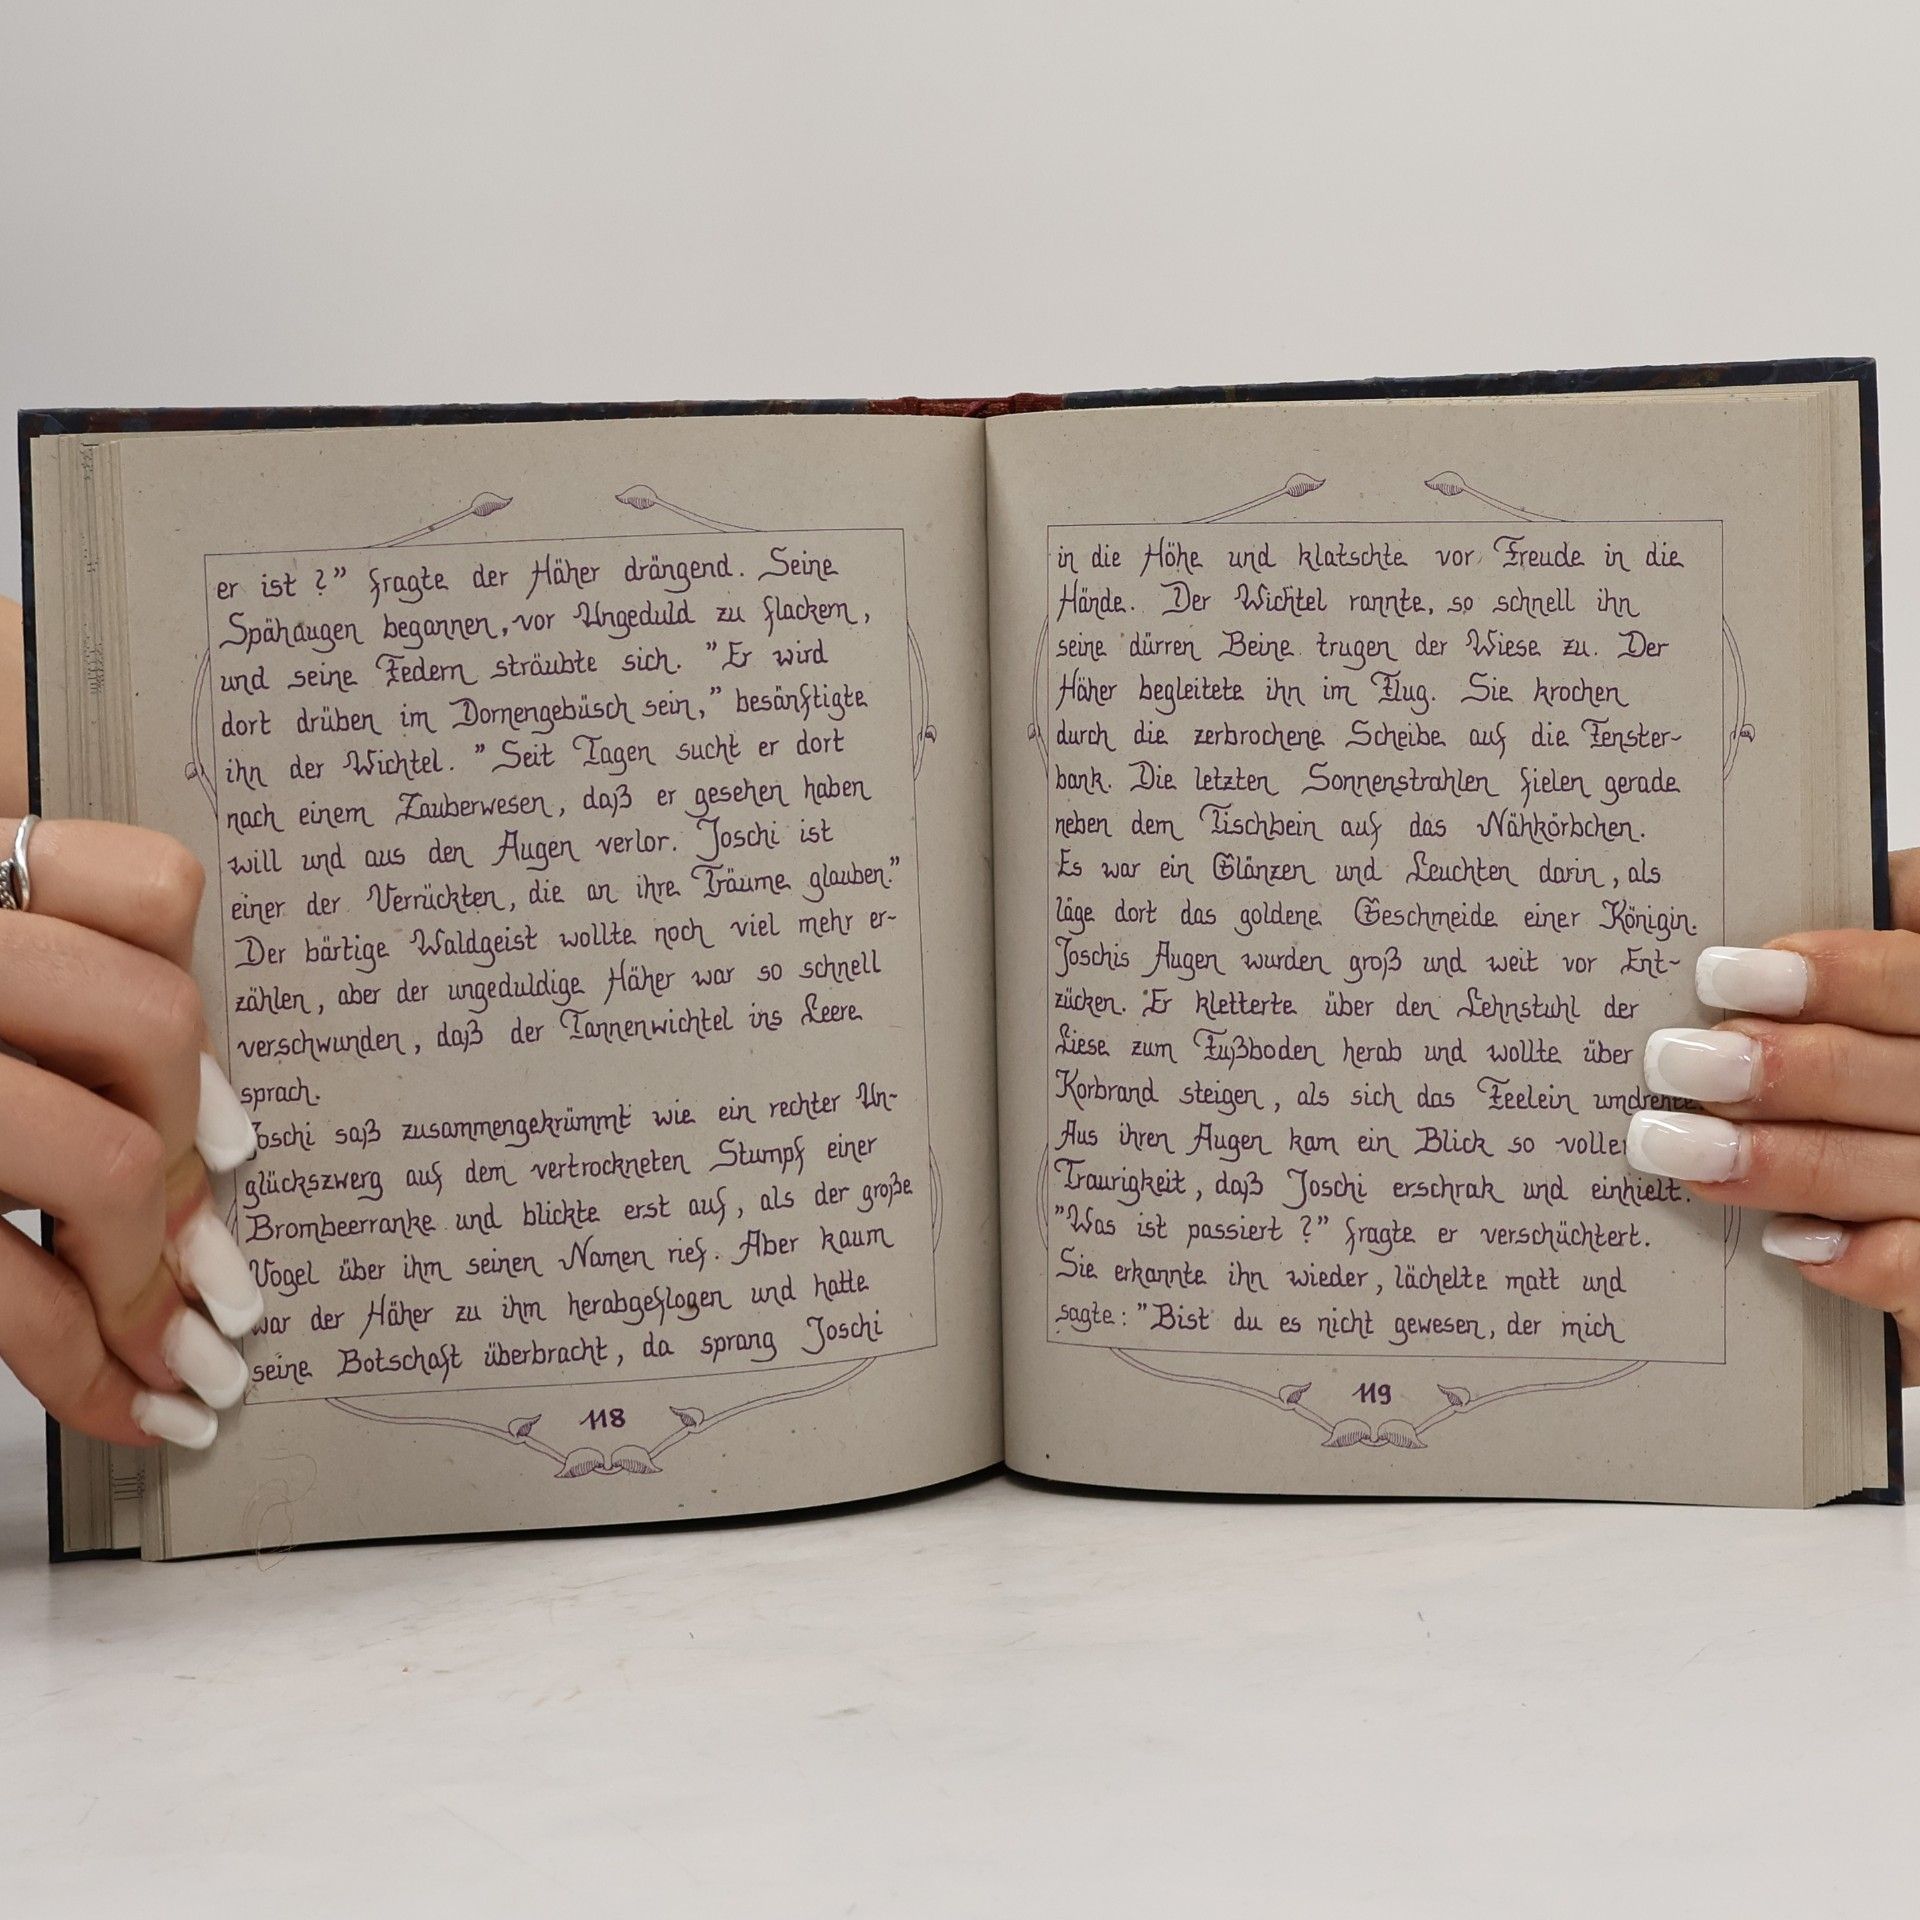 er ist ?" fragte der Häher drängend. Seine
Spähaugen begannen, vor Ungeduld zu flackern,
und seine Federn sträubte sich. "Er wird
dort drüben im Dornengebüsch sein," besänftigte
ihn der Wichtel. "Seit Tagen sucht er dort
nach einem Zauberwesen, daß er gesehen haben
will und aus den Augen verlor. Joschi ist
einer der Verrückten, die an ihre Träume glauben."
Der bärtige Waldgeist wollte noch viel mehr er-
zählen, aber der ungeduldige Häher war so schnell
verschwunden, daß der Tannenwichtel ins Leere
sprach.
Joschi saß zusammengekrümmt wie ein rechter Un-
glückszwerg auf dem vertrockneten Stumpf einer
Brombeerranke und blickte erst auf, als der große
Vogel über ihm seinen Namen rief. Aber kaum
war der Häher zu ihm herabgeflogen und hatte
seine Botschaft überbracht, da sprang Joschi
118
in die Höhe und klatschte vor Freude in die
Hände. Der Wichtel rannte, so schnell ihn
seine dürren Beine trugen der Wiese zu. Der
Häher begleitete ihn im Flug. Sie krochen
durch die zerbrochene Scheibe auf die Fenster-
bank. Die letzten Sonnenstrahlen fielen gerade
neben dem Tischbein auf das Nähkörbchen.
Es war ein Glänzen und Leuchten darin, als
läge dort das goldene Geschmeide einer Königin.
Joschis Augen wurden groß und weit vor Ent-
zücken. Er kletterte über den Lehnstuhl der
Liese zum Fußboden herab und wollte über
Korbrand steigen, als sich das Feelein umdrehte.
Aus ihren Augen kam ein Blick so voller
Traurigkeit, daß Joschi erschrak und einhielt.
"Was ist passiert ?" fragte er verschüchtert.
Sie erkannte ihn wieder, lächelte matt und
sagte: "Bist du es nicht gewesen, der mich
119